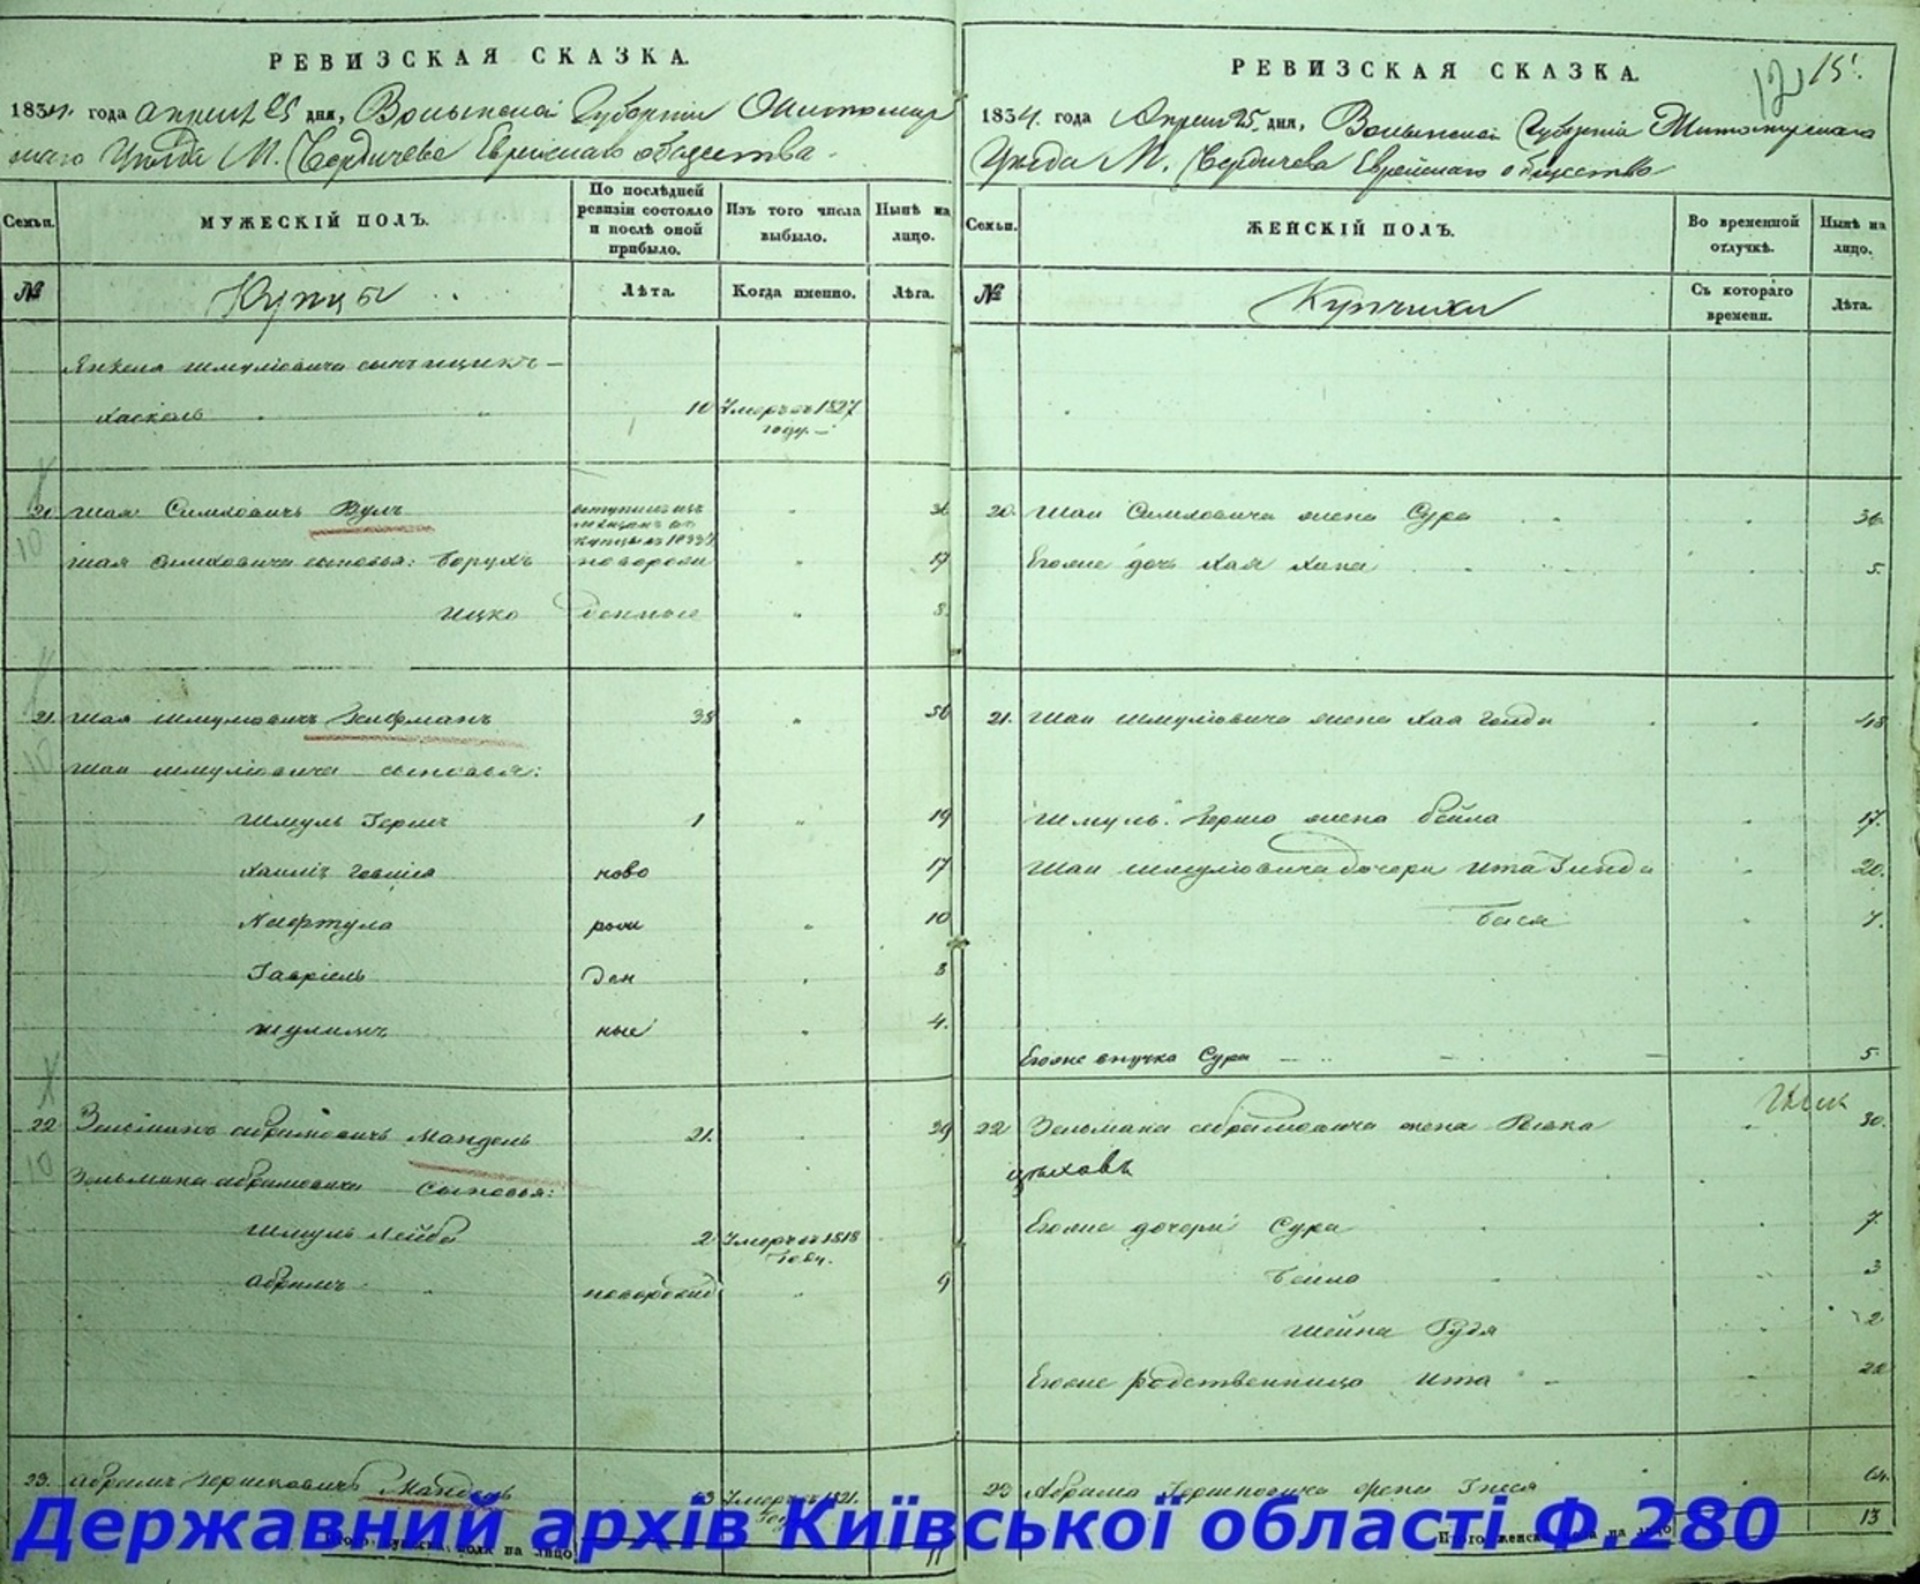 РЕВИЗСКАЯ СКАЗКА.
1834 года апреля 25 дня, Волынской Губернии Житомир
скаго Уезда М. Бердичева Еврейскаго общества
Семьи.
МУЖЕСКІЙ ПОЛЪ.
По послѣдней ревизіи состояло и послѣ оной прибыло.
Изъ того числа выбыло.
Нынѣ на лицо.
№
Купцы
Лѣта.
Когда именно.
Лѣта.
Янкеля Шмулiовича сынъ Ицикъ
Хаскель 10 Умеръ въ 1827 году.
20 Шая Симховичъ Вулъ
вступилъ изъ мещанъ въ купцы въ 1833
36
Шая Симховича сыновья: Борухъ новорож 17
Ицко денные 8
21. Шая Шмулiовичъ 38 56
Шаи Шмулiовича сыновья:
Шмуль Гершъ 1 19
Хаимъ ново 17
Нафтула рож 10
Гаврiель ден 8
Шулимъ ные 4.
22 Зельманъ Абрамовичъ Мандель 21. 39
Зельмана Абрамовича сыновья:
Шмуль Лейба 2 Умеръ въ 1818 году.
Абрамъ новорожд 9
23. Абрамъ Гершковичъ Мандель 63 Умеръ въ 1821.
Итого мужеска пола на лицо 11
РЕВИЗСКАЯ СКАЗКА.
12 15.
1834. года Апреля 25. дня, Волынской Губернiи Житомирскаго
Уезда М. Бердичева Еврейскаго общества
Семьи.
ЖЕНСКІЙ ПОЛЪ.
Во временной отлучкѣ.
Нынѣ на лицо.
№
Купчихи
Съ котораго времени.
Лѣта.
20. Шаи Симховича жена Сура 36
Егоже дочь Хая Хана 5.
21. Шаи Шмулiовича жена Хая Голда 48
Шмуль Герша жена Бейла 17.
Шаи Шмулiовича дочери Ита Гинда 20.
Бася 7.
Егоже внучка Сура 5.
22 Зельмана Абрамовича жена Ривка 30.
Егоже дочери Сура 7
Бейла 3
Шейна Рудя 2
Егоже родственница Ита 22
23 Абрама Гершковича жена Гнеся 64.
Итого женска пола на лицо 13
Державний архів Київської області Ф.280